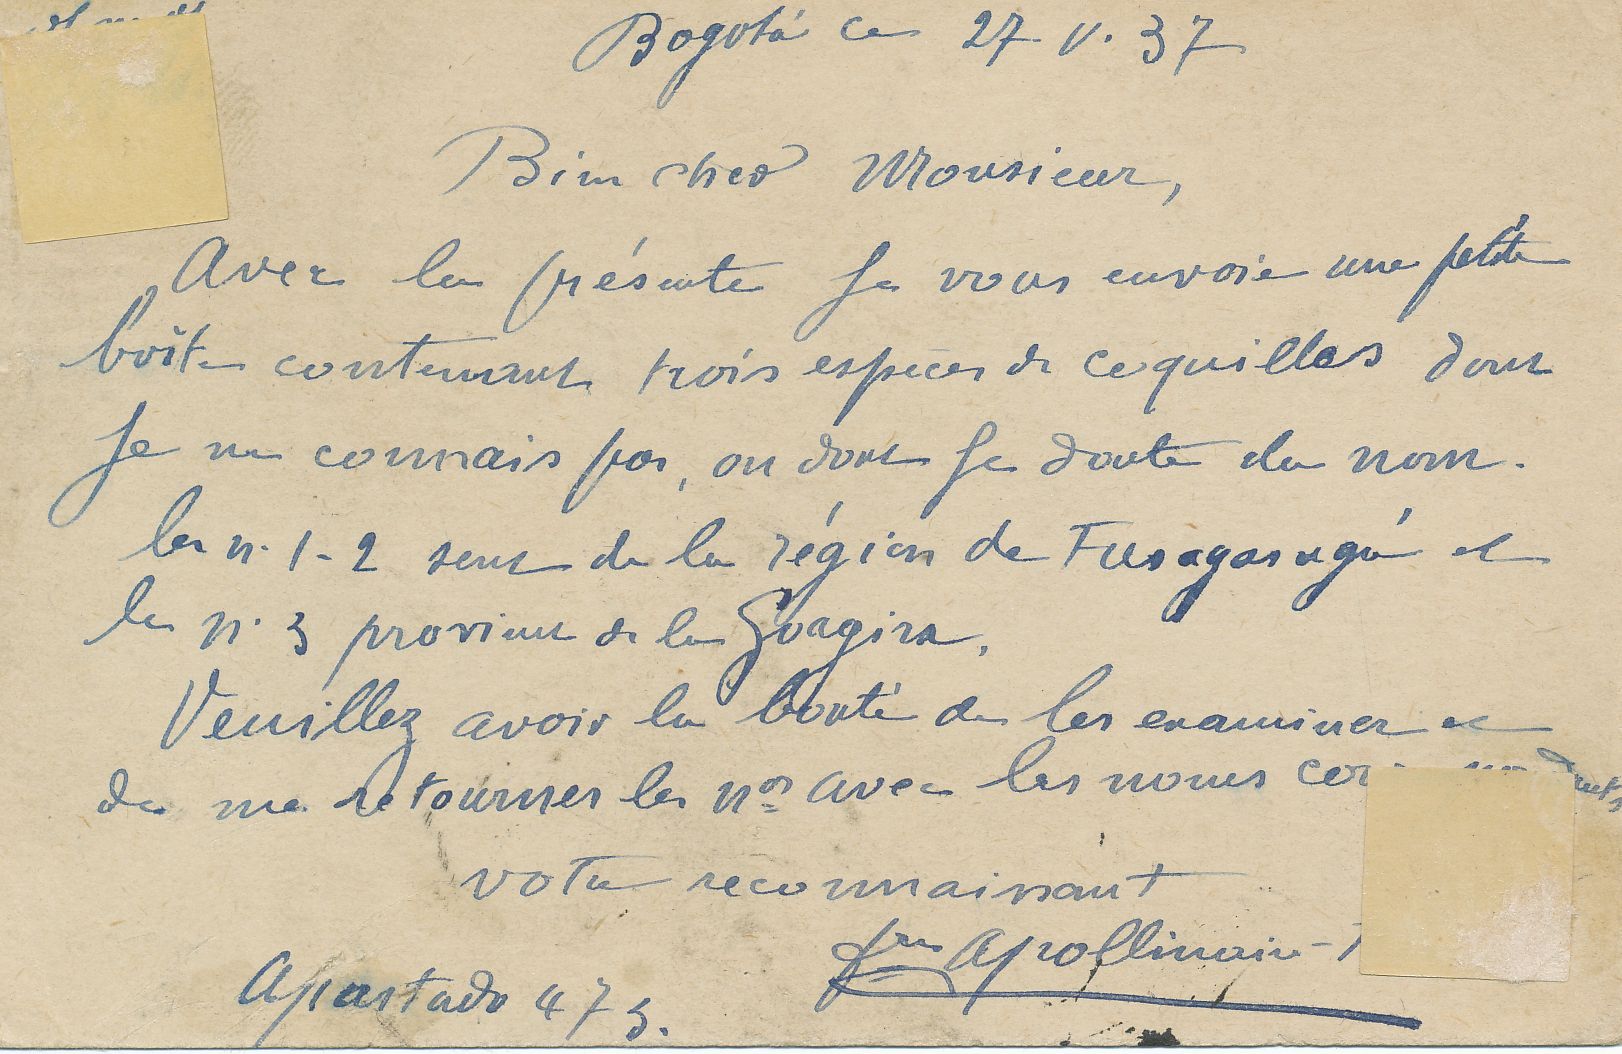 Bogotá ce 27. V. 37
Bien cher Monsieur,
Avec la présente je vous envoie une petite
boîte contenant trois espèces de coquilles dont
je ne connais pas, ou dont je doute du nom.
les n. 1-2 sont de la région de Fusagasugá et
le n. 3 provient de la Goagira.
Veuillez avoir la bonté de les examiner et
de me retourner les nos avec les noms
votre reconnaissant
Apollinaire-
Apartado 473.